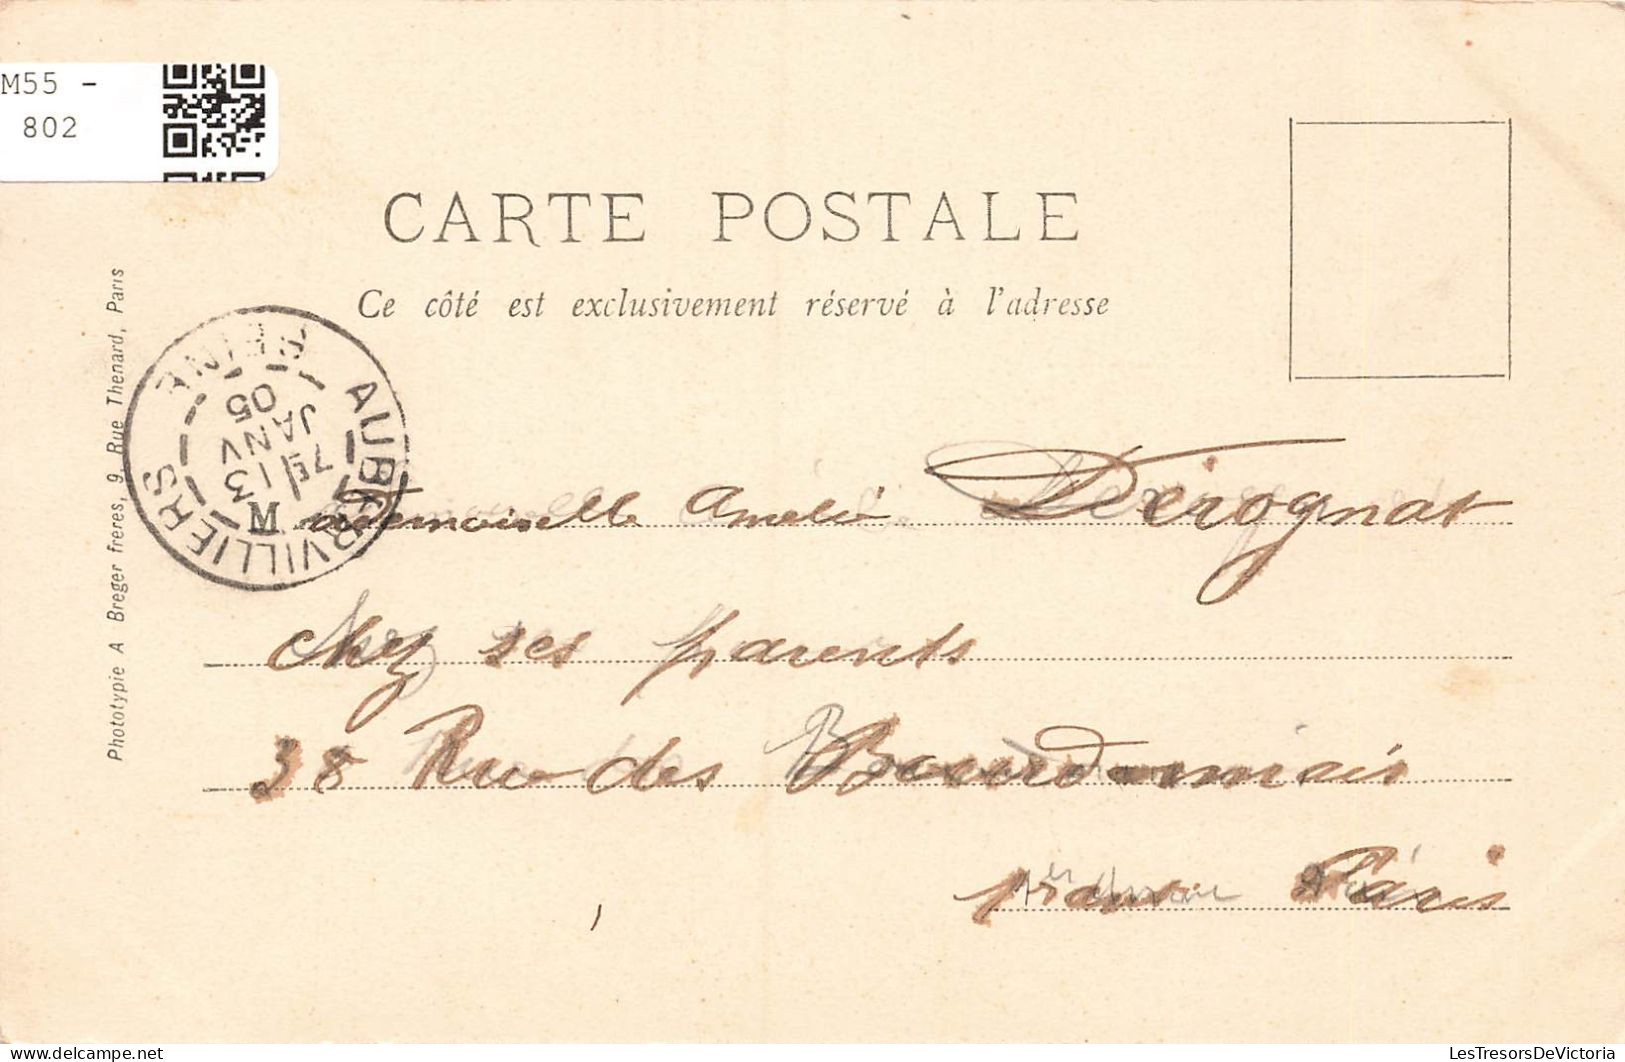 M55 -
802
CARTE POSTALE
Ce côté est exclusivement réservé à l'adresse
Phototypie A Breger freres, 9, Rue Thenard, Paris
AUBERVILLIERS
SEINE
7E
13
JANV
05
Mademoiselle Amelie Derognat
chez ses parents
38 Rue des Bourdonnais
Paris
LesTresorsDeVictoria